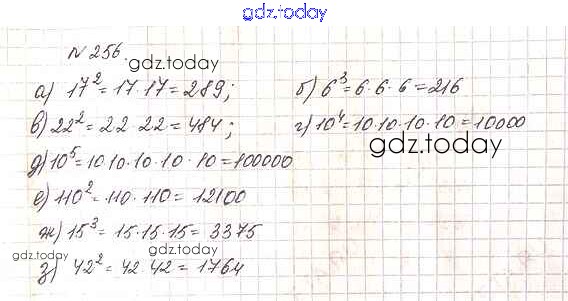 gdz.today
№ 256.
gdz.today
а) 17² = 17·17 = 289; б) 6³ = 6·6·6 = 216
в) 22² = 22·22 = 484; г) 10⁴ = 10·10·10·10 = 10000
gdz.today
д) 10⁵ = 10·10·10·10·10 = 100000
е) 110² = 110·110 = 12100
ж) 15³ = 15·15·15 = 3375
gdz.today
gdz.today
з) 42² = 42·42 = 1764